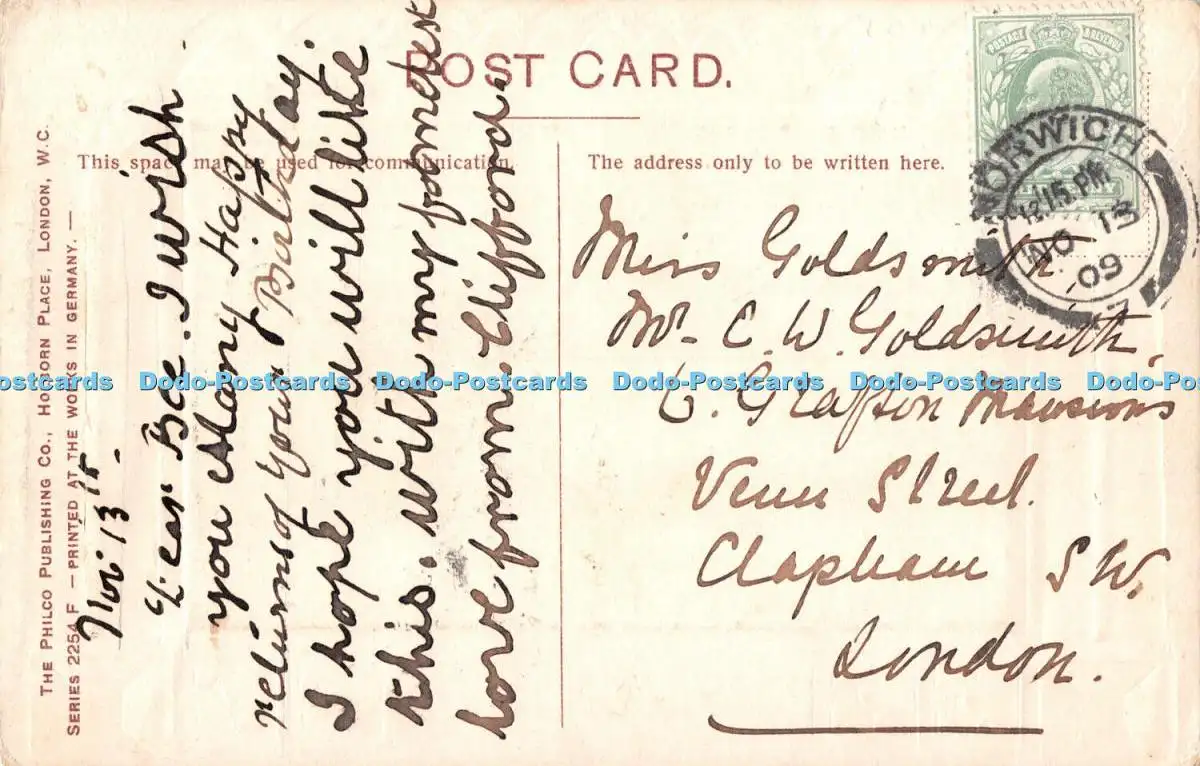 POST CARD.
This space may be used for communication.
The address only to be written here.
THE PHILCO PUBLISHING CO., HOLBORN PLACE, LONDON, W.C.
SERIES 2254 F — PRINTED AT THE WORKS IN GERMANY. —
POSTAGE & REVENUE
NORWICH
12.15 PM
NO 13
09
Nov 13th.
Dear Bee. I wish
you Many Happy
returns of your Birthday.
I hope you will like
this. with my fondest
love from Clifford.
Miss Goldsmith
Mr. C. W. Goldsmith,
Grafton Mansions
Venn Street.
Clapham S W.
London.
Dodo-Postcards Dodo-Postcards Dodo-Postcards Dodo-Postcards Dodo-Postcards Dodo-Postcards